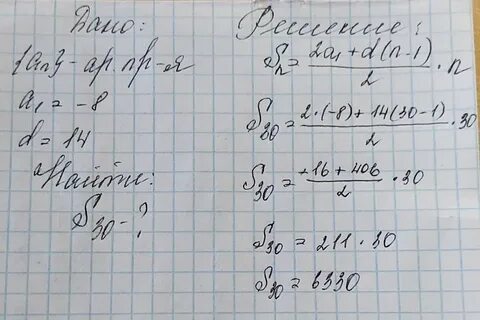 Дано:
{aₙ} - ар. пр-я
a₁ = -8
d = 14
Найти:
S₃₀ - ?
Решение:
Sₙ = (2a₁ + d(n-1))/2 · n
S₃₀ = (2·(-8) + 14(30-1))/2 · 30
S₃₀ = (+16 + 406)/2 · 30
S₃₀ = 211 · 30
S₃₀ = 6330